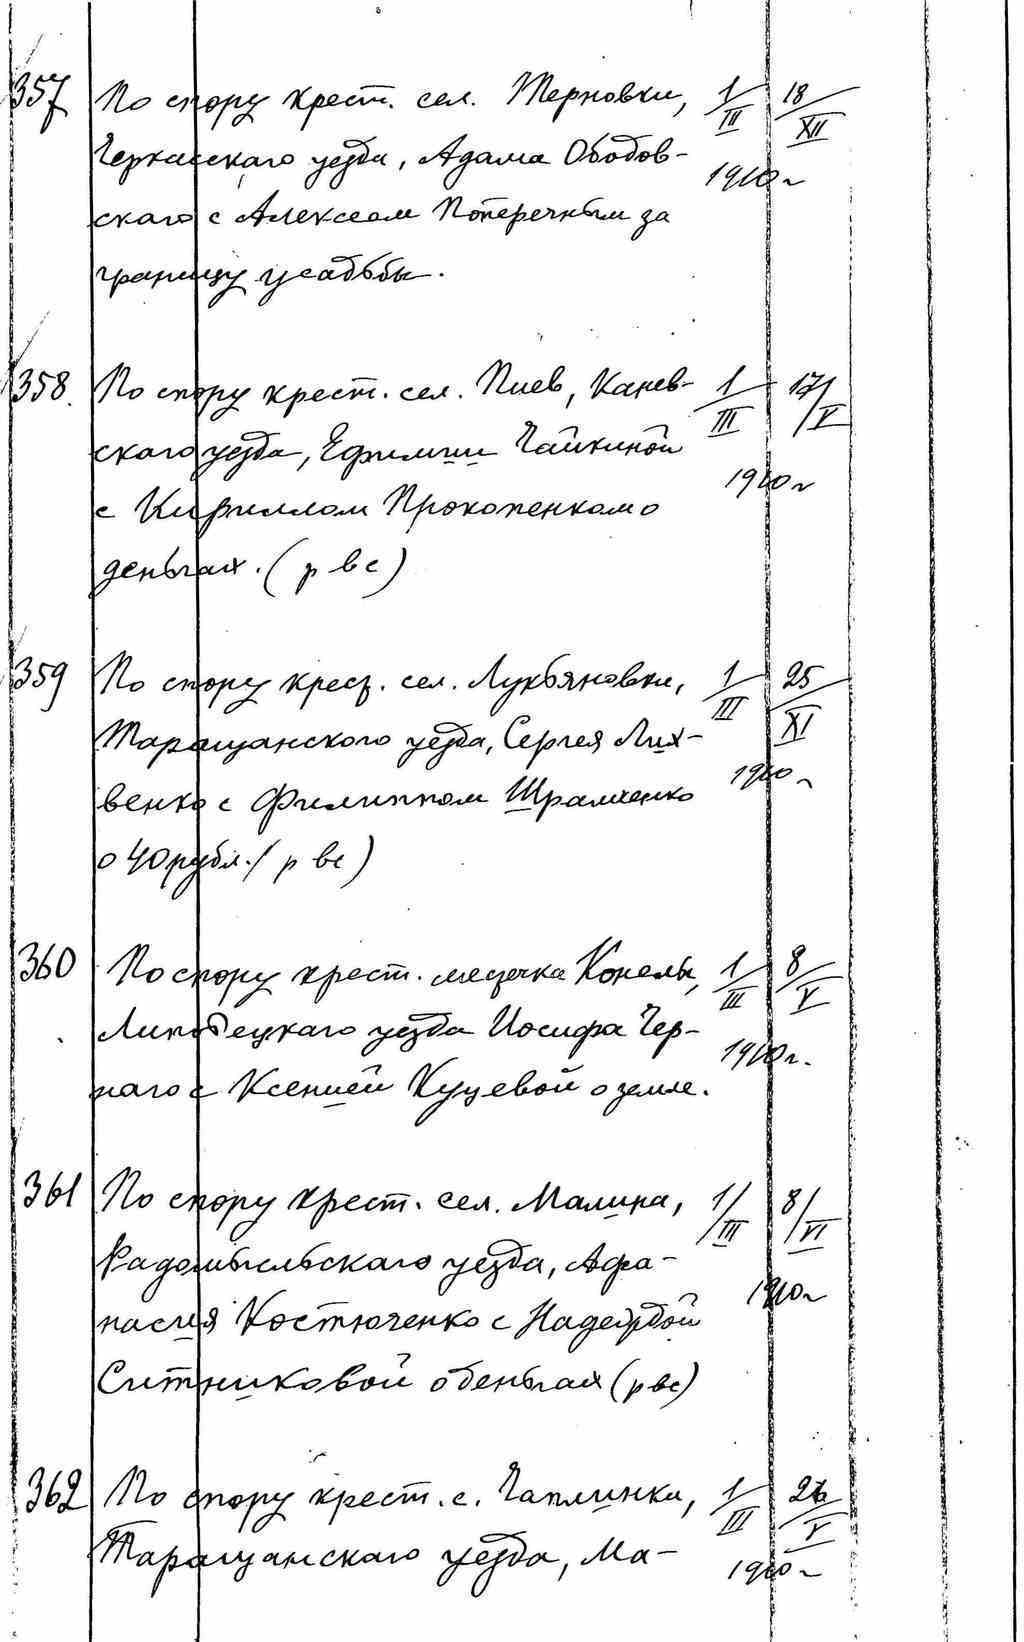 357 По спору крест. сел. Терновки, 1/III 18/XII
Черкасскаго уезда, Адама Ободов- 1910 г
скаго с Алексеем Поперечным за
границу усадьбы.
358. По спору крест. сел. Пиев, Канев- 1/III 17/V
скаго уезда, Ефимии Чайкиной 1910 г
с Кириллом Прокопенком о
деньгах. (р вс)
359 По спору крест. сел. Лукьяновки, 1/III 25/XI
Таращанского уезда, Сергея Лих- 1910 г
венко с Филиппом Шрамченко
о 40 рубл. (р вс)
360 По спору крест. местечка Конелы, 1/III 8/V
Липовецкаго уезда Иосифа Чер- 1910 г.
наго с Ксенией Куцевой о земле.
361 По спору крест. сел. Малина, 1/III 8/VI
Радомысльскаго уезда, Афа- 1910 г
насия Костюченко с Надеждой
Ситниковой о деньгах (р вс)
362 По спору крест. с. Чаплинки, 1/III /V
Таращанскаго уезда, Ма- 1910 г